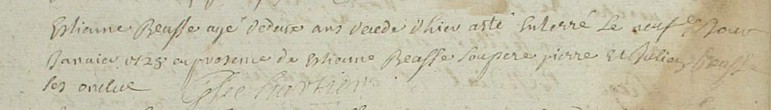 Estienne Beasse agé de deux ans decedé d'hier a esté Enterré Le neuf.e Jour
Janvier 1725 en presence de Estienne Beasse son pere pierre et Julien Beasse
ses oncles